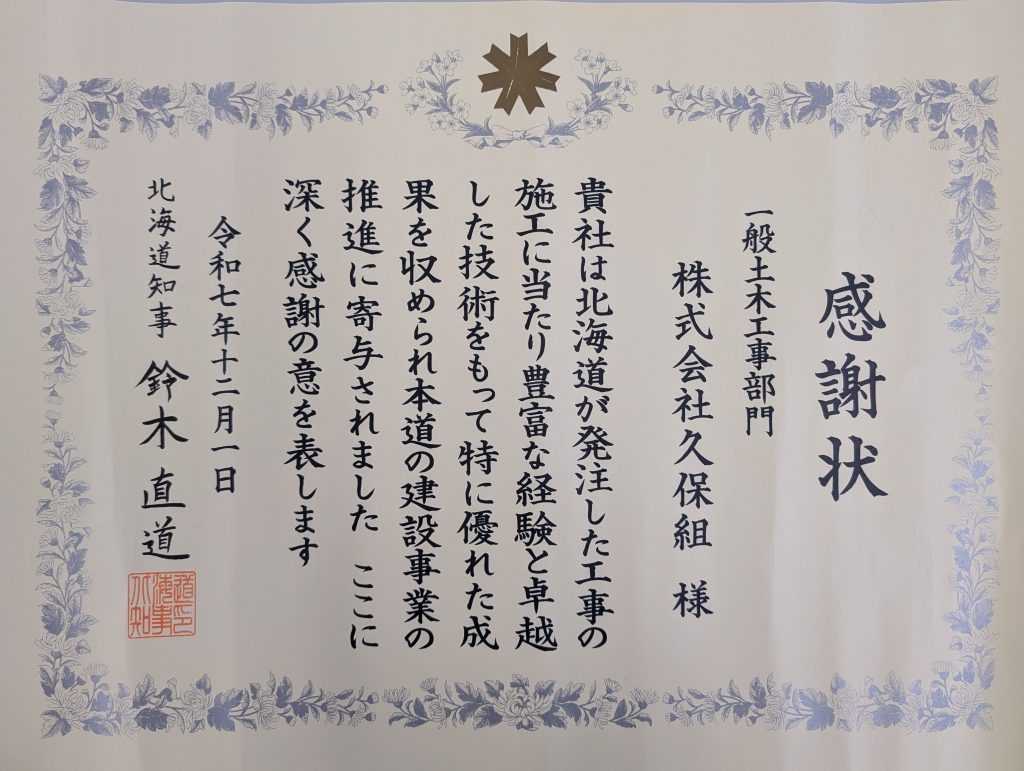 感謝状
一般土木工事部門
株式会社久保組 様
貴社は北海道が発注した工事の
施工に当たり豊富な経験と卓越
した技術をもって特に優れた成
果を収められ本道の建設事業の
推進に寄与されました ここに
深く感謝の意を表します
令和七年十二月一日
北海道知事 鈴木直道
北海道知事印